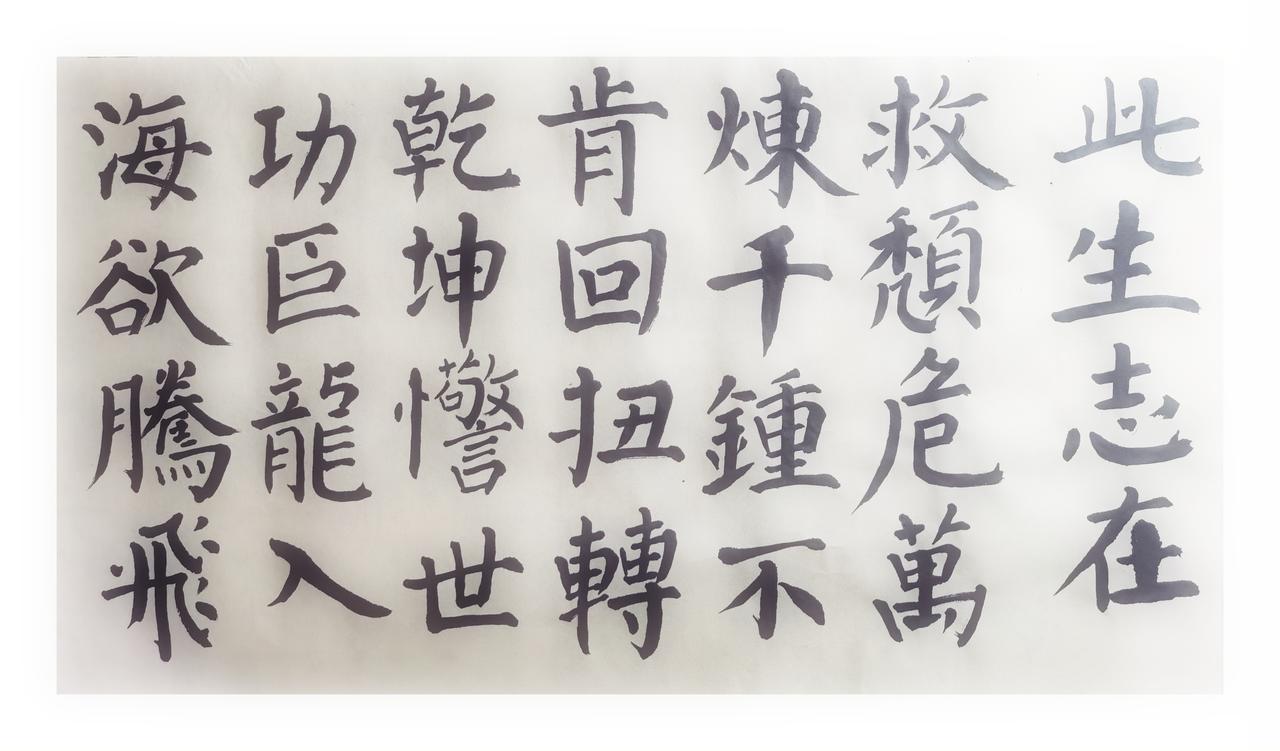 此生志在
救頹危萬
煉千鍾不
肯回扭轉
乾坤憼世
功巨龍入
海欲騰飛